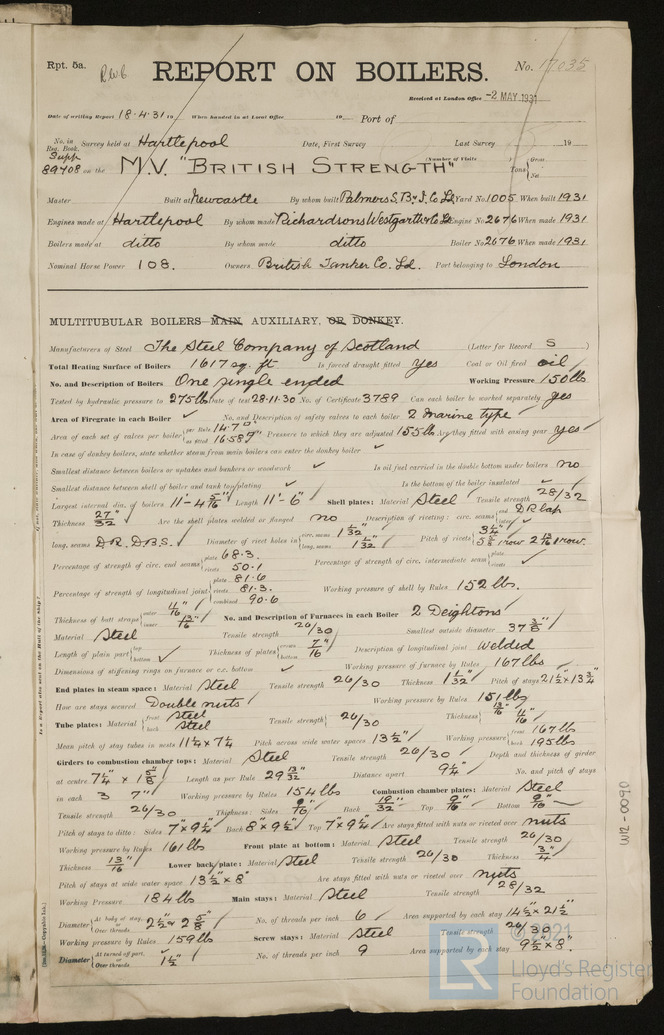 Rpt. 5a.
REPORT ON BOILERS.
No. 17035
Received at London Office -2 MAY 1931
Date of writing Report 18.4.31 19 When handed in at Local Office 19 Port of
No. in Reg. Book. Survey held at Hartlepool Date, First Survey Last Survey 19
Supp 89408 on the M.V. "BRITISH STRENGTH" (Number of Visits ) Tons Gross Net
Master Built at Newcastle By whom built Palmers S.B. & I. Co Ld Yard No. 1005 When built 1931
Engines made at Hartlepool By whom made Richardsons Westgarth & Co Ld Engine No. 2676 When made 1931
Boilers made at ditto By whom made ditto Boiler No. 2676 When made 1931
Nominal Horse Power 108. Owners British Tanker Co. Ld. Port belonging to London
MULTITUBULAR BOILERS MAIN AUXILIARY, OR DONKEY.
Manufacturers of Steel The Steel Company of Scotland (Letter for Record S )
Total Heating Surface of Boilers 1617 sq. ft Is forced draught fitted Yes Coal or Oil fired oil
No. and Description of Boilers One single ended Working Pressure 150 lb
Tested by hydraulic pressure to 275 lb Date of test 28.11.30 No. of Certificate 3789 Can each boiler be worked separately yes
Area of Firegrate in each Boiler ✓ No. and Description of safety valves to each boiler 2 marine type
Area of each set of valves per boiler per Rule 14.7" as fitted 16.587" Pressure to which they are adjusted 155 lb Are they fitted with easing gear yes
In case of donkey boilers, state whether steam from main boilers can enter the donkey boiler ✓
Smallest distance between boilers or uptakes and bunkers or woodwork ✓ Is oil fuel carried in the double bottom under boilers no
Smallest distance between shell of boiler and tank top plating ✓ Is the bottom of the boiler insulated ✓
Largest internal dia. of boilers 11'-4 5/16" Length 11'-6" Shell plates: Material Steel Tensile strength 28/32
Thickness 27/32 Are the shell plates welded or flanged no Description of riveting: circ. seams end D.R. lap inter ✓
long. seams D.R. D.B.S. Diameter of rivet holes in circ. seams 1 1/32" long. seams 1 1/32" Pitch of rivets
Percentage of strength of circ. end seams plate 68.3 rivets 50.1 Percentage of strength of circ. intermediate seam plate rivets ✓
Percentage of strength of longitudinal joint plate 81.6 rivets 81.3 combined 90.6 Working pressure of shell by Rules 152 lb.
Thickness of butt straps outer 11/16" inner 13/16" No. and Description of Furnaces in each Boiler 2 Deightons
Material Steel Tensile strength 26/30 Smallest outside diameter 37 3/8"
Length of plain part top bottom ✓ Thickness of plates crown bottom 7/16" Description of longitudinal joint welded
Dimensions of stiffening rings on furnace or c.c. bottom ✓ Working pressure of furnace by Rules 167 lbs
End plates in steam space: Material Steel Tensile strength 26/30 Thickness 1 1/32" Pitch of stays 21 1/2 x 13 3/4"
How are stays secured Double nuts Working pressure by Rules 151 lbs
Tube plates: Material front Steel back Steel Tensile strength 26/30 Thickness 13/16" 11/16"
Mean pitch of stay tubes in nests 11 1/4 x 7 1/4 Pitch across wide water spaces 13 1/2" Working pressure front 167 lb back 195 lb
Girders to combustion chamber tops: Material Steel Tensile strength 26/30 Depth and thickness of girder
at centre 7 1/4" x 1 5/8" Length as per Rule 29 13/32 Distance apart 9 1/4" No. and pitch of stays
in each 3 7" Working pressure by Rules 154 lbs Combustion chamber plates: Material Steel
Tensile strength 26/30 Thickness: Sides 9/16" Back 19/32 Top 9/16" Bottom 9/16"
Pitch of stays to ditto: Sides 7" x 9 1/4" Back 8" x 9 1/2" Top 7" x 9 1/4" Are stays fitted with nuts or riveted over nuts
Working pressure by Rules 161 lb Front plate at bottom: Material Steel Tensile strength 26/30
Thickness 13/16 Lower back plate: Material Steel Tensile strength 26/30 Thickness 3/4"
Pitch of stays at wide water space 13 1/2 x 8" Are stays fitted with nuts or riveted over nuts
Working Pressure 184 lb Main stays: Material Steel Tensile strength 28/32
Diameter At body of stay, or Over threads 2 1/2" & 2 5/8" No. of threads per inch 6 Area supported by each stay 14 1/2 x 21 1/2"
Working pressure by Rules 159 lb Screw stays: Material Steel Tensile strength 26/30
Diameter At turned off part, or Over threads 1 1/2" No. of threads per inch 9 Area supported by each stay 9 1/2 x 8"
W12-0090
© 2021
LR
Lloyd's Register
Foundation